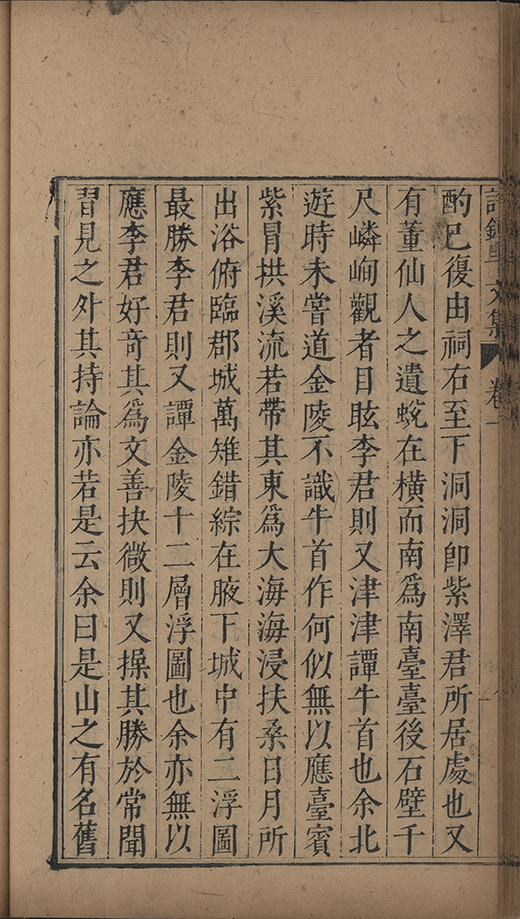 許鍾斗文集 卷一
酌已復由祠右至下洞洞卽紫澤君所居處也又
有董仙人之遺蛻在橫而南爲南臺臺後石壁千
尺嶙峋觀者目眩李君則又津津譚牛首也余北
遊時未嘗道金陵不識牛首作何似無以應臺賓
紫冐拱溪流若帶其東爲大海海浸扶桑日月所
出浴俯臨郡城萬雉錯綜在腋下城中有二浮圖
最勝李君則又譚金陵十二層浮圖也余亦無以
應李君好竒其爲文善抉微則又操其勝於常聞
習見之外其持論亦若是云余曰是山之有名舊